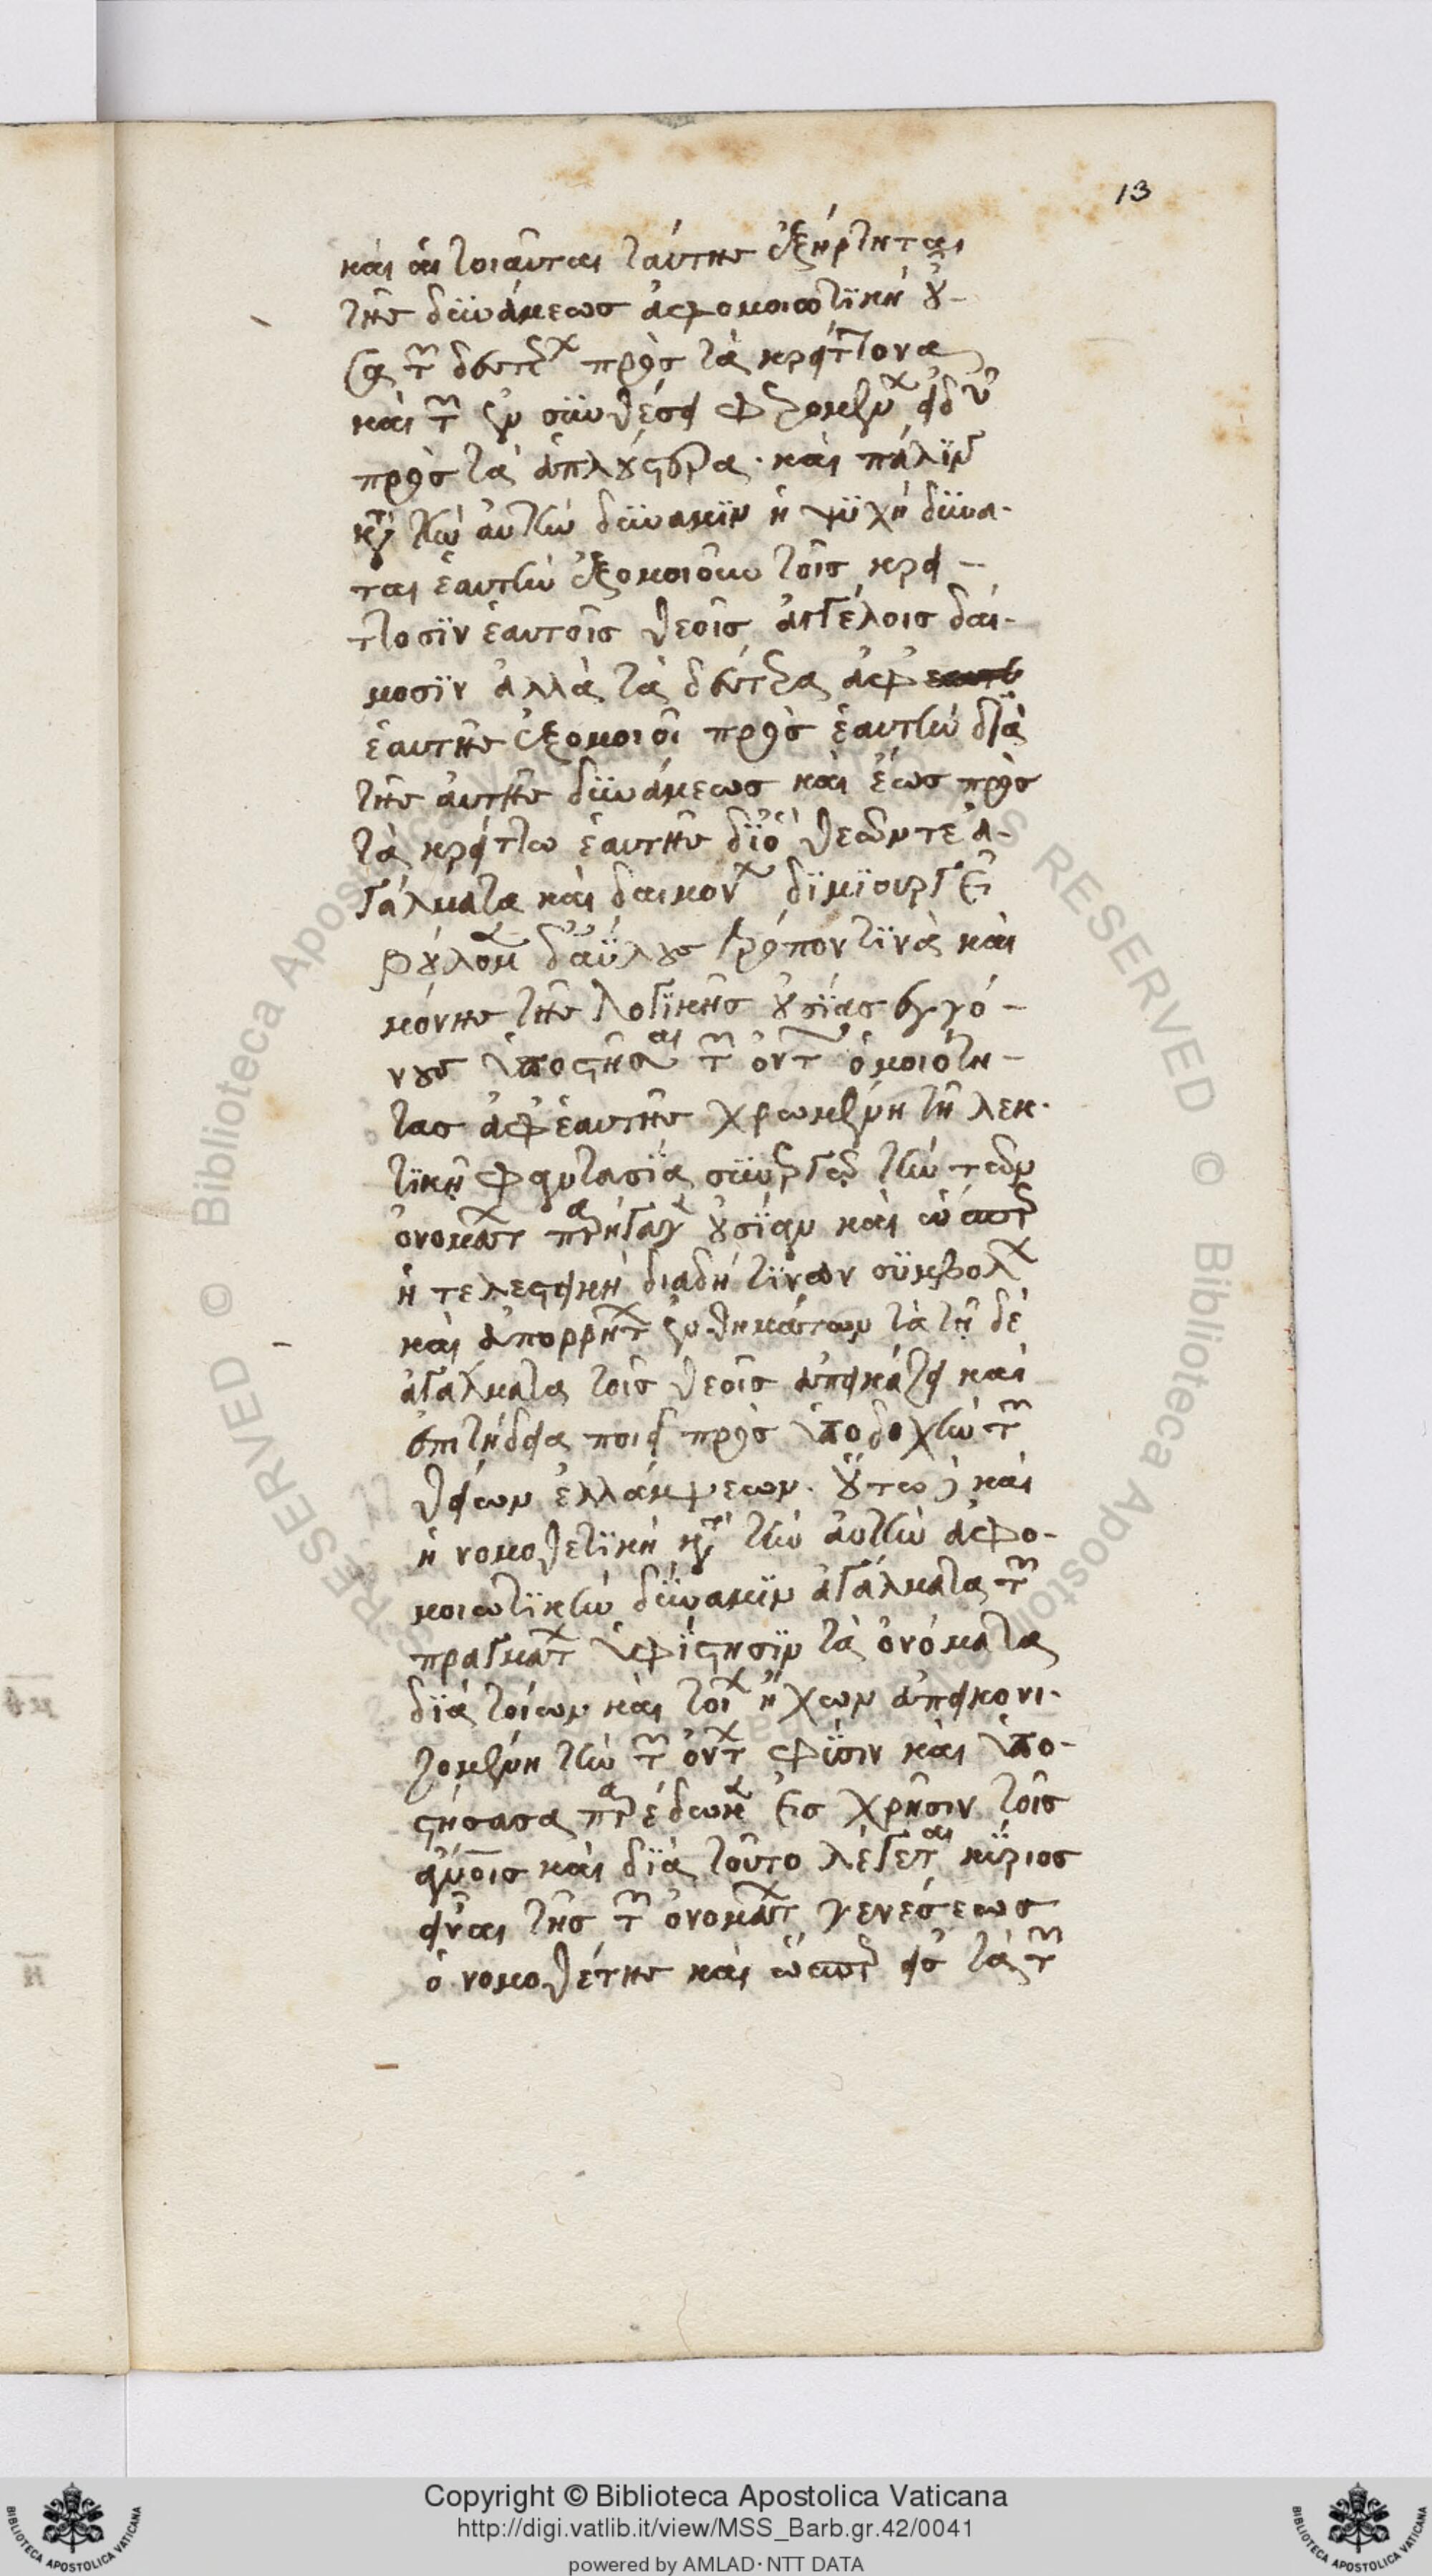 13
καὶ αἱ τοιαῦται ταύτης ἐξήρτηται
τῆς δυνάμεως ἀφομοιωτικὴ οὖ-
σα τῶν δευτέρων πρὸς τὰ κρείττονα
καὶ τῶν ἐν συνθέσει φερομένων εἰδῶν
πρὸς τὰ ἁπλούστερα. καὶ πάλιν
κατὰ τὴν αὐτὴν δύναμιν ἡ ψυχὴ δύνα-
ται ἑαυτὴν ἐξομοιοῦν τοῖς κρεί-
ττοσιν ἑαυτοῖς θεοῖς ἀγγέλοις δαί-
μοσιν ἀλλὰ τὰ δεύτερα ἀφ
ἑαυτῆς ἐξομοιοῖ πρὸς ἑαυτὴν διὰ
τῆς αὐτῆς δυνάμεως καὶ ἕως πρὸς
τὰ κρείττω ἑαυτῆς διὸ θεῶν τε ἀ-
γάλματα καὶ δαιμόνων δημιουργεῖ
βουλομένη δ ἀΰλους τρόπον τινὰ καὶ
μόνης τῆς λογικῆς οὐσίας ἐγγό-
νους ὑποστῆσαι τῶν ὄντων ὁμοιότη-
τας ἀφ ἑαυτῆς χρωμένη τῇ λεκ-
τικῇ φαντασίᾳ συνεργῷ τὴν τῶν
ὀνομάτων παρήγαγεν οὐσίαν καὶ ὥσπερ
ἡ τελεστικὴ διαδή τινων συμβόλων
καὶ ἀπορρήτων συνθημάτων τὰ τῇδε
ἀγάλματα τοῖς θεοῖς ἀπεικάζει καὶ
ἐπιτήδεια ποιεῖ πρὸς ὑποδοχὴν τῶν
θείων ἐλλάμψεων. οὕτω δὲ καὶ
ἡ νομοθετικὴ κατὰ τὴν αὐτὴν ἀφο-
μοιωτικὴν δύναμιν ἀγάλματα τῶν
πραγμάτων ὑφίστησιν τὰ ὀνόματα
διὰ τοίων καὶ τοίων ἤχων ἀπεικονι-
ζομένη τὴν τῶν ὄντων φύσιν καὶ ὑπο-
στήσασα παρέδωκεν εἰς χρῆσιν τοῖς
ἀνοις καὶ διὰ τοῦτο λέγεται κύριος
εἶναι τῆς τῶν ὀνομάτων γενέσεως
ὁ νομοθέτης καὶ ὥσπερ εἰς τὰ τῶν
Copyright © Biblioteca Apostolica Vaticana
http://digi.vatlib.it/view/MSS_Barb.gr.42/0041
powered by AMLAD·NTT DATA